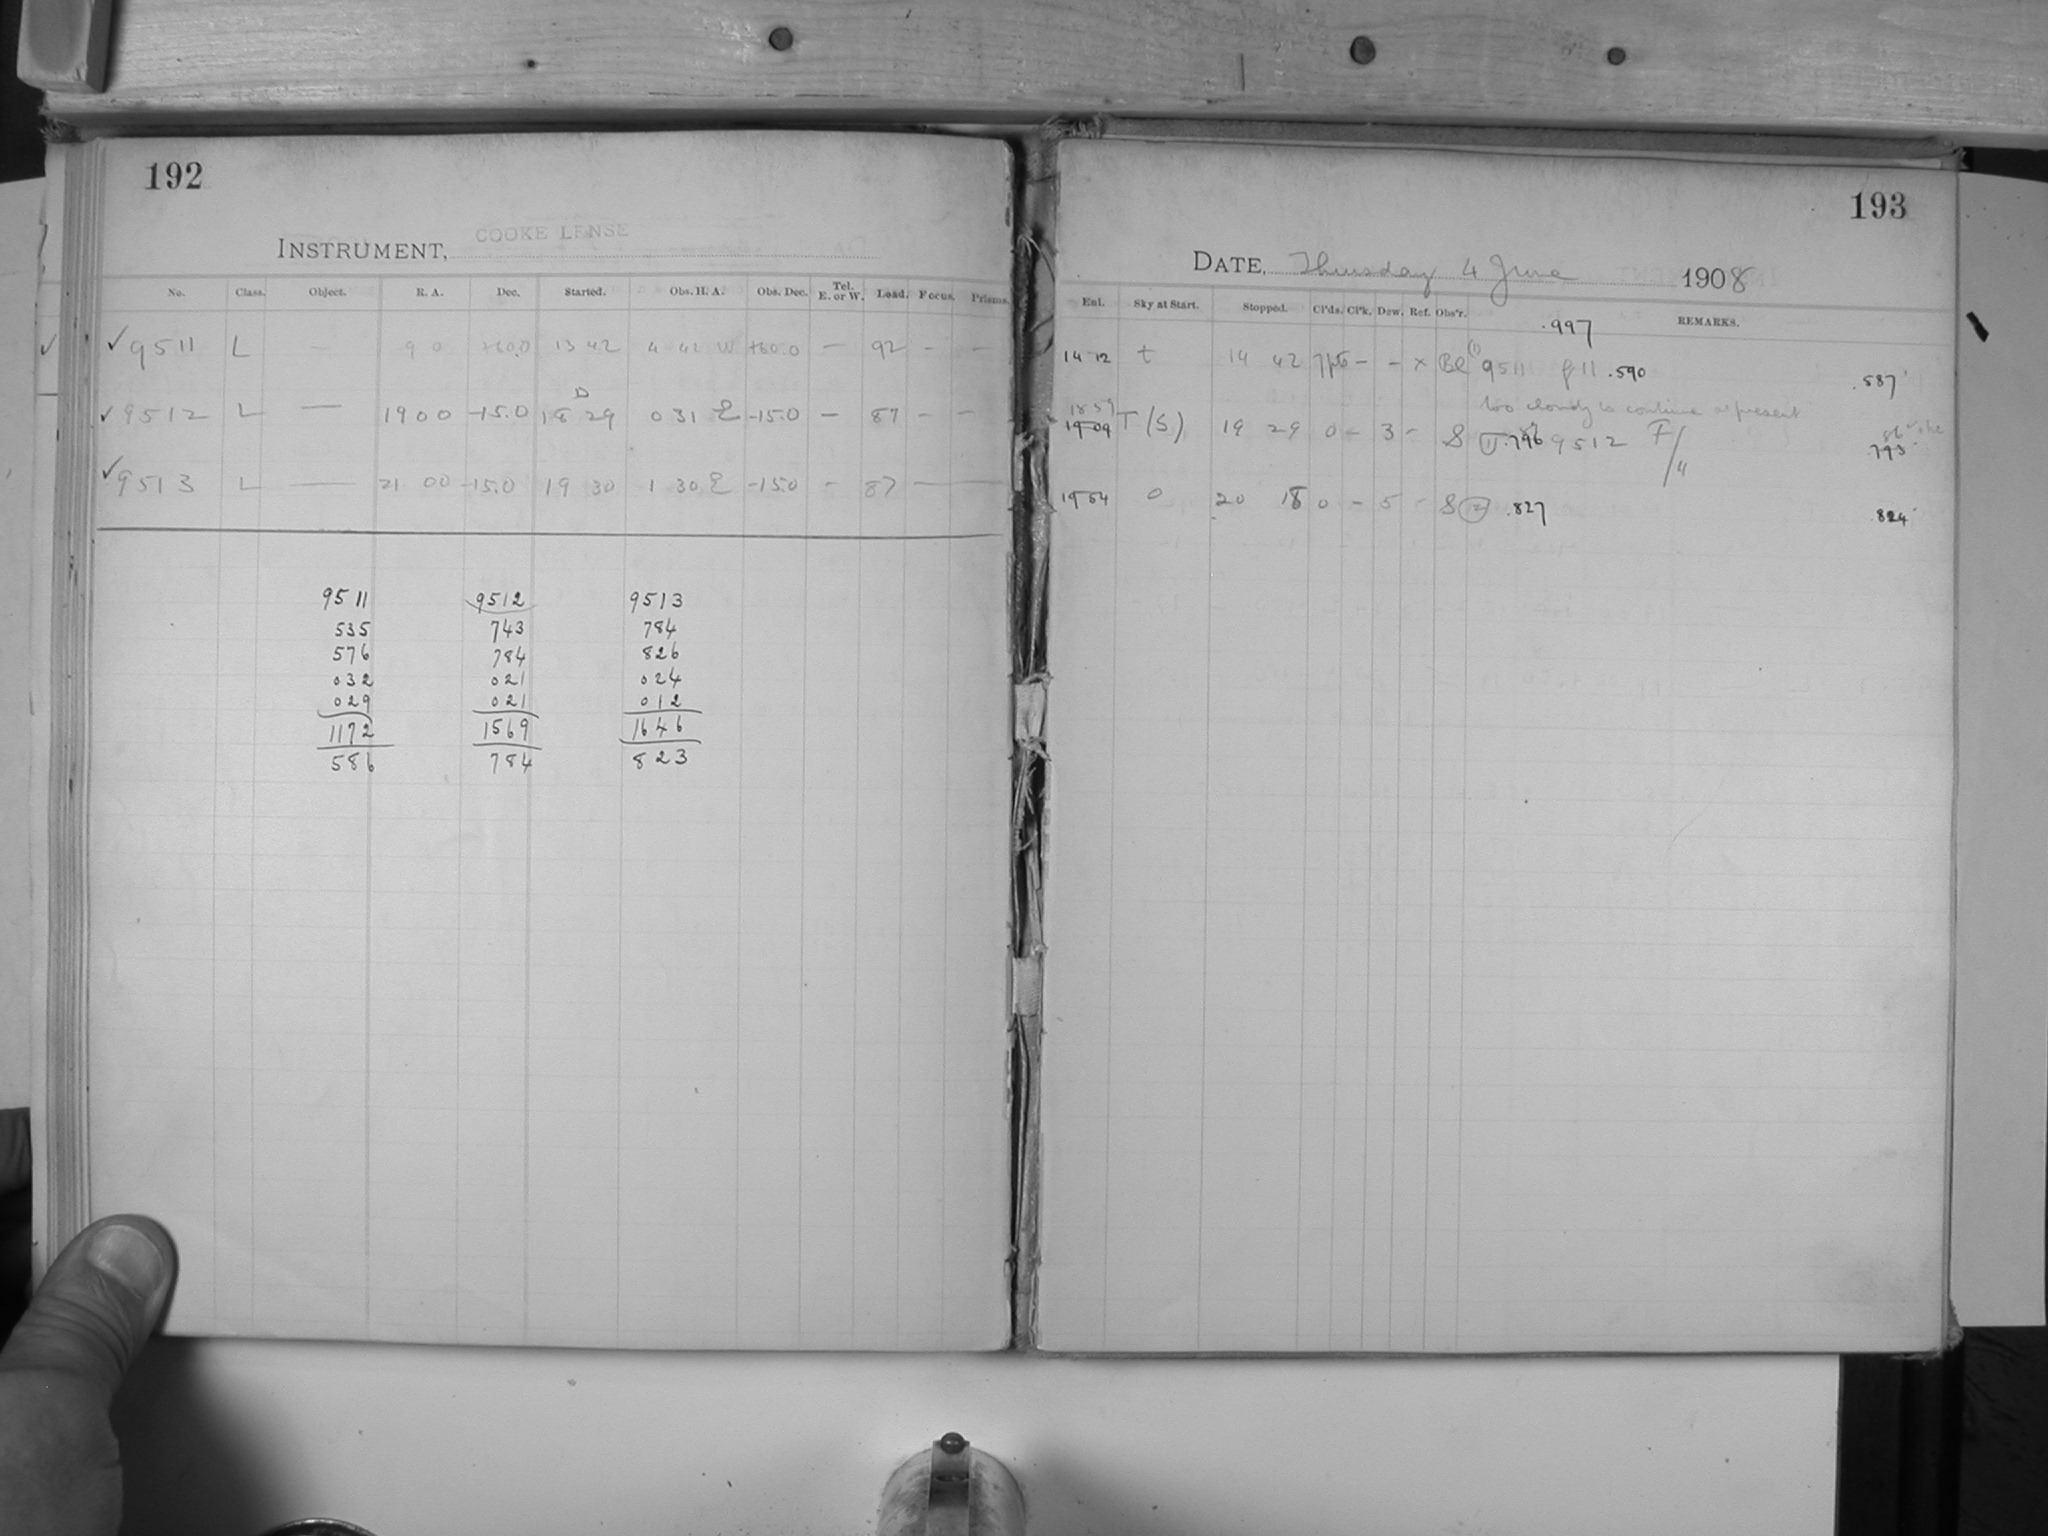 192
INSTRUMENT, COOKE LENSE
No. Class. Object. R. A. Dec. Started. Obs. H. A. Obs. Dec. Tel. E. or W. Load. Focus. Prisms.
✓ 9511 L — 9 0 +60.0 13 42 4 42 W +60.0 — 92 - -
D
✓ 9512 L — 19 00 -15.0 18 29 0 31 E -15.0 — 87 - -
✓ 9513 L — 21 00 -15.0 19 30 1 30 E -15.0 - 87 — —
9511 9512 9513
535 743 784
576 784 826
032 021 024
029 021 012
1172 1569 1646
586 784 823
193
DATE, Thursday 4 June 1908
Enl. Sky at Start. Stopped. Cl'ds. Cl'k. Dew. Ref. Obs'r. REMARKS.
.997
14 12 t 14 42 - - x Bl (1) 9511 .590 .587
too cloudy to continue at present
18 59
19 09 T (S) 19 29 0 - 3 - S (1) .796 9512 F/4 .793
19 54 0 20 18 0 - 5 - S (2) .827 .824